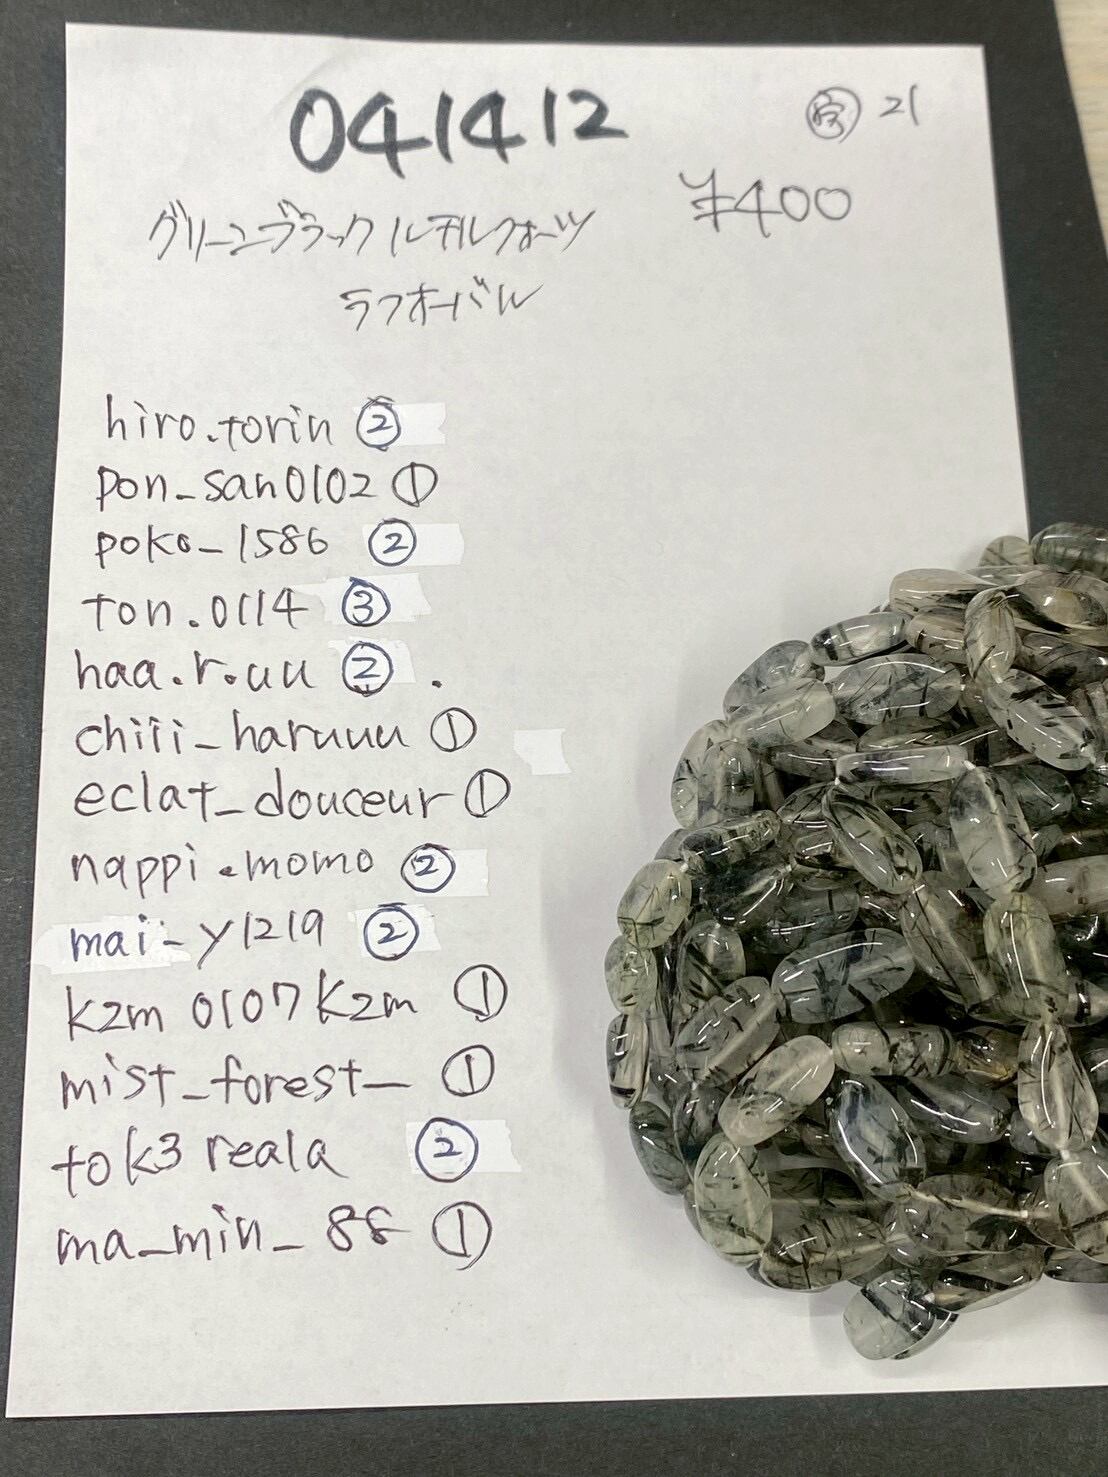 041412
21
¥400
グリーンブラックルチルクォーツ
ラフオーバル
hiro.torin ②
pon_san0102 ①
poko_1586 ②
ton.0114 ③
haa.r.uu ②.
chiii_haruuu ①
eclat_douceur ①
nappi.momo ②
mai_y1219 ②
kzm 0107 kzm ①
mist_forest_ ①
tok3 reala ②
ma_min_88 ①